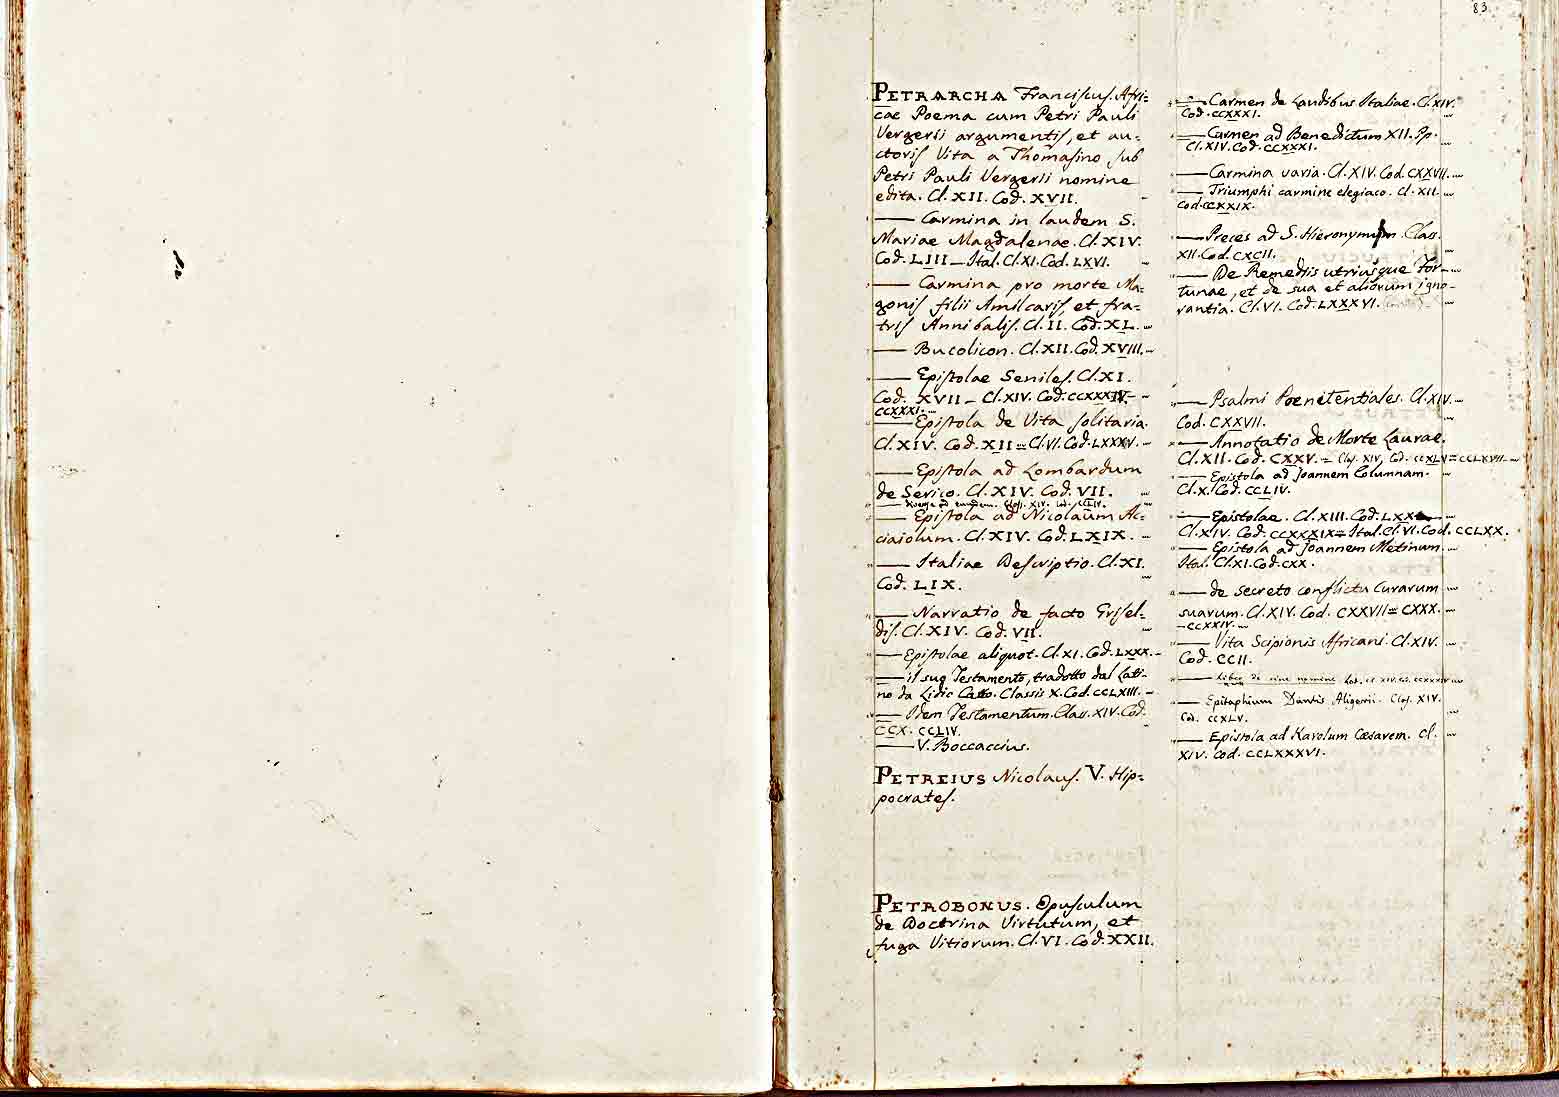 83
PETRARCHA Franciscus. Afri=
cae Poema cum Petri Pauli
Vergerii argumentis, et au=
ctoris Vita a Thomasino sub
Petri Pauli Vergerii nomine
edita. Cl. XII. Cod. XVII.
— Carmina in laudem S.
Mariae Magdalenae. Cl. XIV.
Cod. LIII — Ital. Cl. XI. Cod. LXVI.
— Carmina pro morte Ma=
gonis filii Amilcaris, et fra=
tris Annibalis. Cl. II. Cod. XL.
— Bucolicon. Cl. XII. Cod. XVIII.
— Epistolae Seniles. Cl. XI.
Cod. XVII — Cl. XIV. Cod. CCXXXIV —
CCXXXI.
— Epistola de Vita solitaria.
Cl. XIV. Cod. XII = Cl. VI. Cod. LXXXV.
— Epistola ad Lombardum
de Serico. Cl. XIV. Cod. VII.
— ad eundem. Class. XIV. Cod. CCLIV.
— Epistola ad Nicolaum Ac=
ciaiolum. Cl. XIV. Cod. LXIX.
— Italiae Descriptio. Cl. XI.
Cod. LIX.
— Narratio de facto Grisel=
dis. Cl. XIV. Cod. VII.
— Epistolae aliquot. Cl. XI. Cod. LXXX.
— il suo Testamento, tradotto dal Lati=
no da Lidio Catto. Classis X. Cod. CCLXIII.
— Idem Testamentum. Class. XIV. Cod.
CCX. CCLIV.
— V. Boccaccius.
PETREIUS Nicolaus. V. Hip=
pocrates.
PETROBONUS. Opusculum
de Doctrina Virtutum, et
fuga Vitiorum. Cl. VI. Cod. XXII.
— Carmen de Laudibus Italiae. Cl. XIV.
Cod. CCXXXI.
— Carmen ad Benedictum XII. Pp.
Cl. XIV. Cod. CCXXXI.
— Carmina varia. Cl. XIV. Cod. CXXVII.
— Triumphi carmine elegiaco. Cl. XII.
Cod. CCXXIX.
— Preces ad S. Hieronymum. Class.
XII. Cod. CXCII.
— De Remediis utriusque For=
tunae, et de sua et aliorum igno=
rantia. Cl. VI. Cod. LXXXVI.
— Psalmi Poenitentiales. Cl. XIV.
Cod. CXXVII.
— Annotatio de Morte Laurae.
Cl. XII. Cod. CXXV. = Class. XIV, Cod. CCXLV = CCLXVII.
— Epistola ad Joannem Columnam.
Cl. X. Cod. CCLIV.
— Epistolae. Cl. XIII. Cod. LXX
Cl. XIV. Cod. CCXXXIX = Ital. Cl. VI. Cod. CCLXX.
— Epistola ad Joannem Metinum.
Ital. Cl. XI. Cod. CXX.
— de secreto conflictu Curarum
suarum. Cl. XIV. Cod. CXXVII = CXXX.
— CCXXIV.
— Vita Scipionis Africani. Cl. XIV.
Cod. CCII.
— Liber de sine nomine
— Epitaphium Dantis Aligerii. Class. XIV.
Cod. CCXLV.
— Epistola ad Karolum Caesarem. Cl.
XIV. Cod. CCLXXXVI.